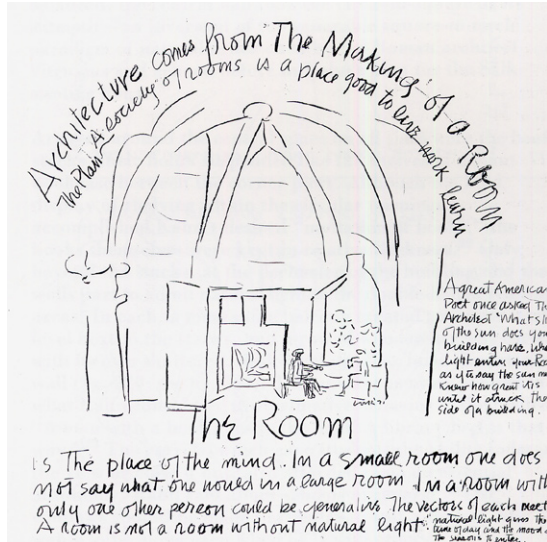 Architecture comes from The Making of a Room
The Plan A society of rooms is a place good to live work learn
A great American
Poet once asked The
Architect "What slice
of the sun does your
building have, what
light enters your Room
as if to say the sun never
knew how great it is
until it struck the
side of a building.
The Room
is The place of the mind. In a small room one does
not say what one would in a large room In a room with
only one other person could be generative The vectors of each meet
A room is not a room without natural light
natural light gives the
time of day and the mood of
the seasons to enter